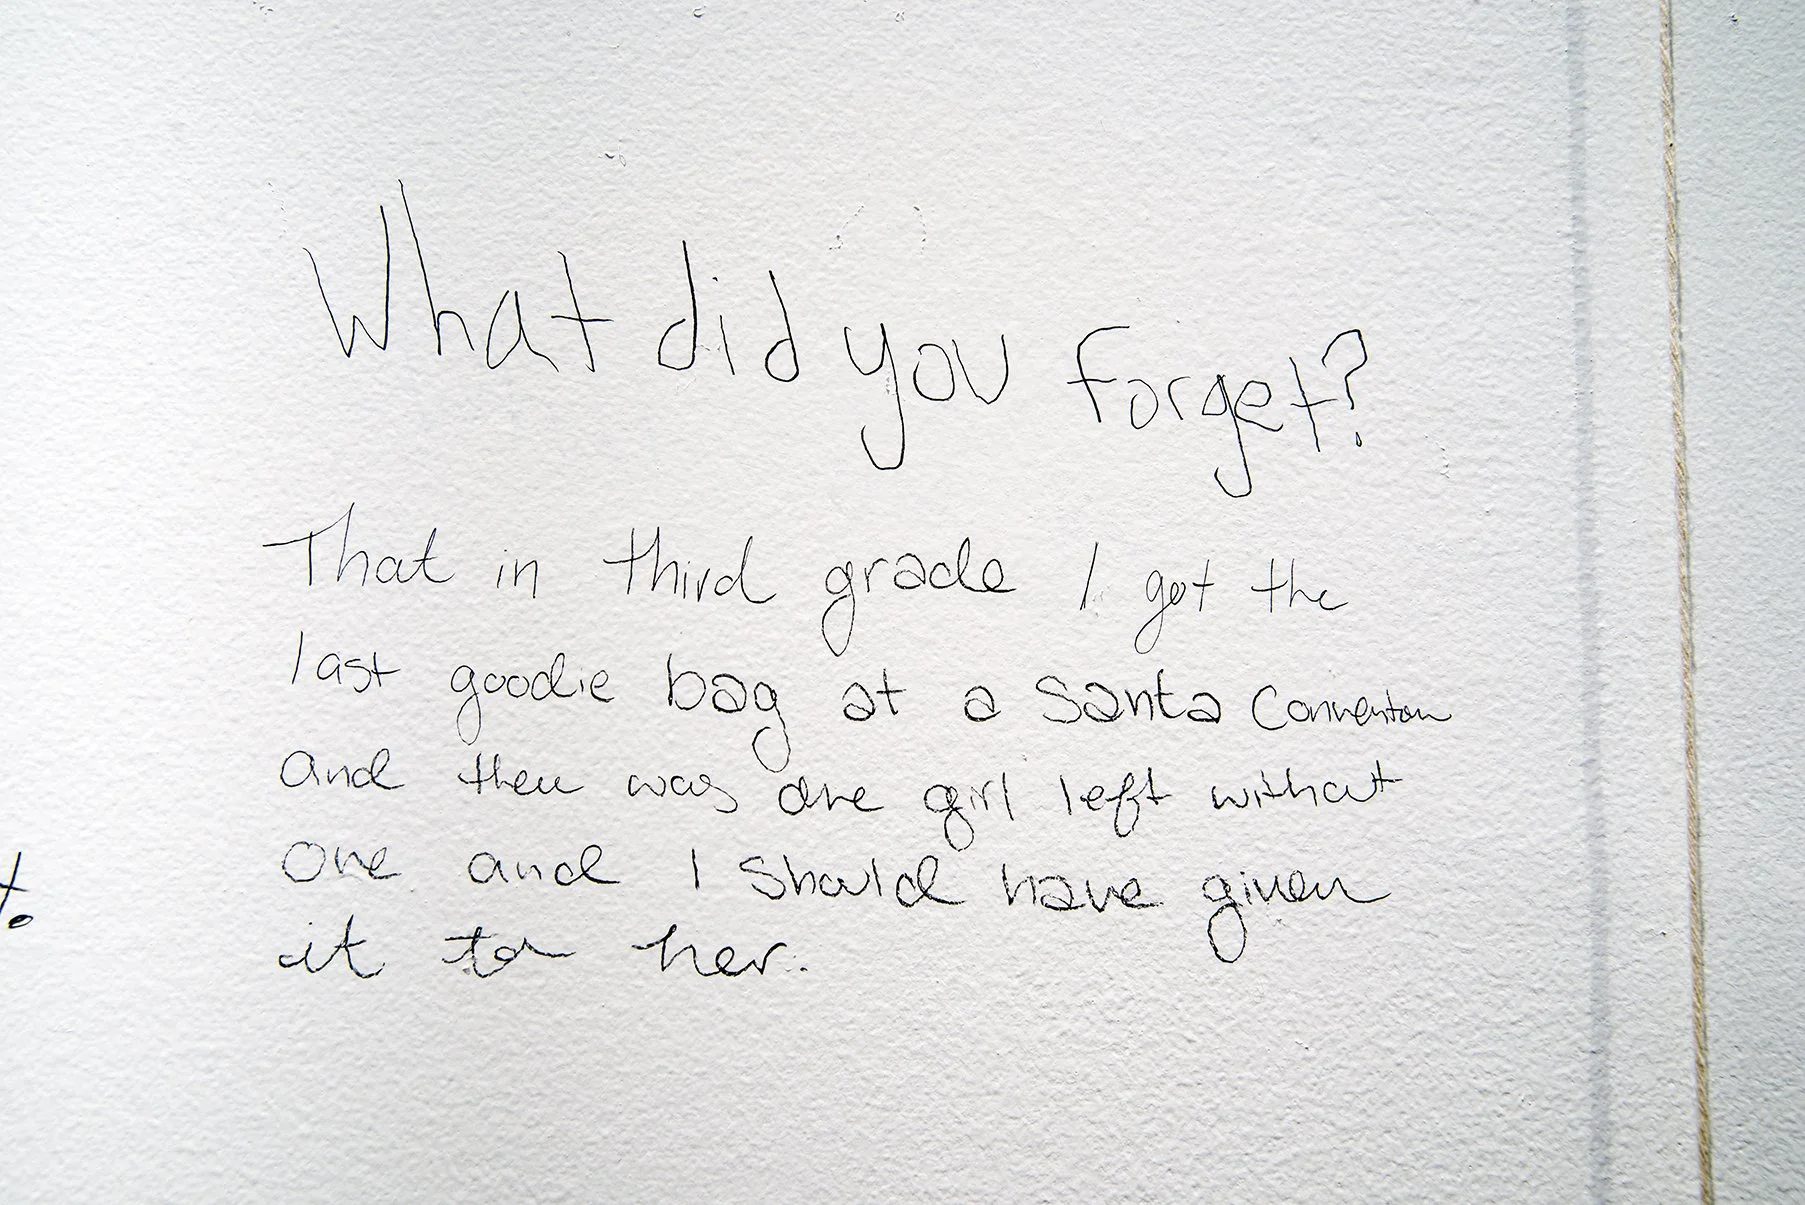 What did you forget?
That in third grade I got the
last goodie bag at a Santa Convention
and there was one girl left without
one and I should have given
it to her.